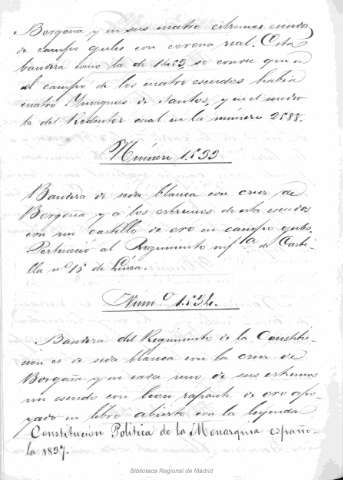 Borgoña y en sus cuatro extremos escudos
de campo gules con corona real. Esta
bandera como la de 1452 se conoce que en
el campo de los cuatro escudos había
cuatro imagenes de Santos, y en el centro
la del Redentor cual en la número 2588.
Número 1.533.
Bandera de seda blanca con cruz de
Borgoña y a los extremos de ella escudos
con un castillo de oro en campo gules.
Perteneció al Regimiento infª de Casti-
lla nº 15 de linea.
Numº 1.534.
Bandera del Regimiento de la Constitu-
cion es de seda blanca con la cruz de
Borgoña y en cada uno de sus extremos
un escudo con leon rapante de oro apo-
yado en libro abierto con la leyenda
Constitucion Politica de la Monarquia españo-
la 1837.
Biblioteca Regional de Madrid